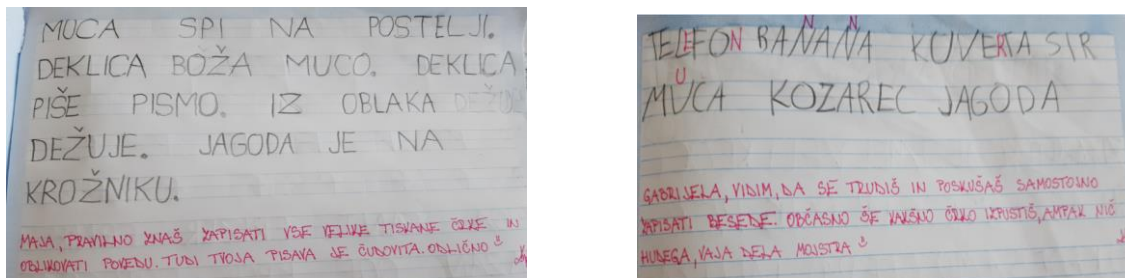 MUCA SPI NA POSTELJI.
DEKLICA BOŽA MUCO. DEKLICA
PIŠE PISMO. IZ OBLAKA DEŽUJE
DEŽUJE. JAGODA JE NA
KROŽNIKU.
MAJA, PRAVILNO ZNAŠ ZAPISATI VSE VELIKE TISKANE ČRKE IN
OBLIKOVATI POVEDI. TUDI TVOJA PISAVA JE ČUDOVITA. ODLIČNO
N N
TELEFON BANANA KUVERTA SIR
U
MUCA KOZAREC JAGODA
GABRIJELA, VIDIM, DA SE TRUDIŠ IN POSKUŠAŠ SAMOSTOJNO
ZAPISATI BESEDE. OBČASNO ŠE KAKŠNO ČRKO IZPUSTIŠ, AMPAK NIČ
HUDEGA, VAJA DELA MOJSTRA